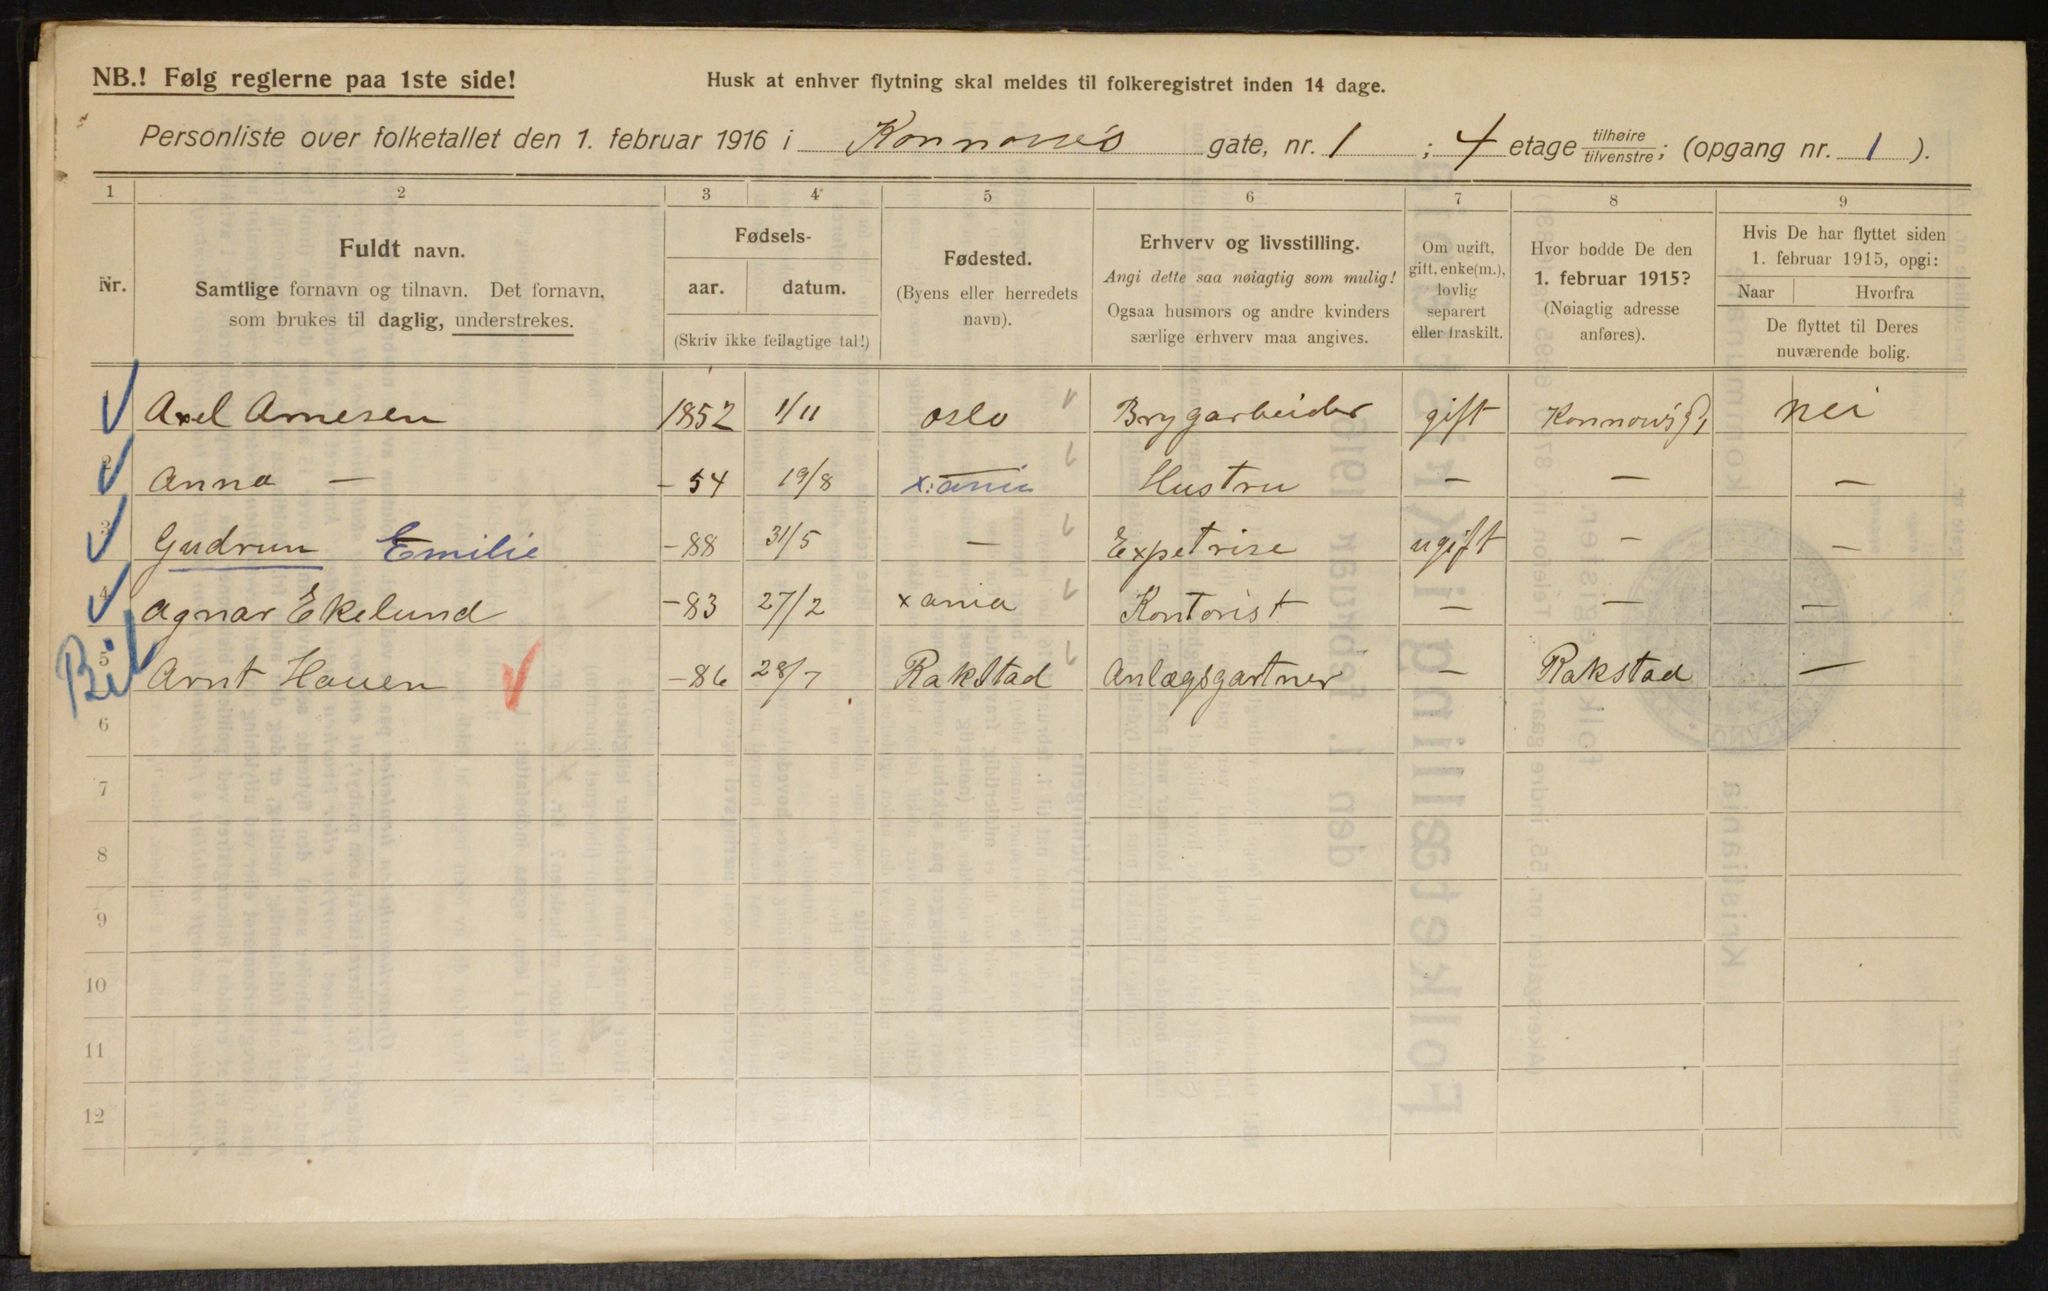 NB.! Følg reglerne paa 1ste side!
Husk at enhver flytning skal meldes til folkeregistret inden 14 dage.
Personliste over folketallet den 1. februar 1916 i Konnows gate, nr. 1 ; 4 etage tilhøire/tilvenstre; (opgang nr. 1 ).
1 2 3 4 5 6 7 8 9
Nr.
Fuldt navn.
Samtlige fornavn og tilnavn. Det fornavn,
som brukes til daglig, understrekes.
Fødsels-
aar. datum.
(Skriv ikke feilagtige tal!)
Fødested.
(Byens eller herredets
navn).
Erhverv og livsstilling.
Angi dette saa nøiagtig som mulig!
Ogsaa husmors og andre kvinders
særlige erhverv maa angives.
Om ugift,
gift, enke(m.),
lovlig
separert
eller fraskilt.
Hvor bodde De den
1. februar 1915?
(Nøiagtig adresse
anføres).
Hvis De har flyttet siden
1. februar 1915, opgi:
Naar Hvorfra
De flyttet til Deres
nuværende bolig.
Axel Arnesen 1852 1/11 Oslo Brygarbeider gift Konnowsg 1 Nei
2 Anna — - 54 19/8 X:ania Hustru — — —
3 Gudrun Emilie - 88 31/5 — Expetrise ugift — —
4 Agnar Ekelund - 83 27/2 Xania Kontorist — — —
5 Arnt Hauen - 86 28/7 Rakstad Anlægsgartner — Rakstad —
6
7
8
9
10
11
12